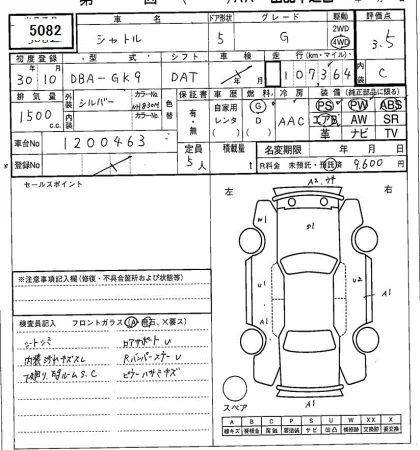 5082
車名 ドア形状 グレード 駆動 評価点
シャトル 5 G 2WD 4WD 3.5
初度登録 型式 シフト 車検 走行(km・マイル) 内装
30 10 DBA-GK9 DAT 107364 C
年 月
排気量 外装 シルバー カラーNo. NH830M 色替 保証書 車歴 燃料 冷房 装備(純正部品に限る)
1500 c.c. 内装 カラーNo. 有・無 自家用 レンタ G D AAC PS PW ABS
エアB AW SR
革 ナビ TV
車台No 1200463 定員 5人 積載量 t 名変期限 年 月 日
登録No R料金 未預託・預託済 9,600円
セールスポイント 左 右
A2 ウチ
W1 S1 U2
U1 U1 A1
A1
スペア
※注意事項記入欄(修復・不具合箇所および状態等)
検査員記入 フロントガラス(A・飛石、×要ス)
シートシミ ロアサポートU
内装スレキズスレ RバンパーステーU
下廻り、ルームS.C ピラーハサミキズ
A B C P S U W XX X
線キズ 要補修 腐蝕 要塗装 サビ 凹凸 補修跡 交換跡 要交換